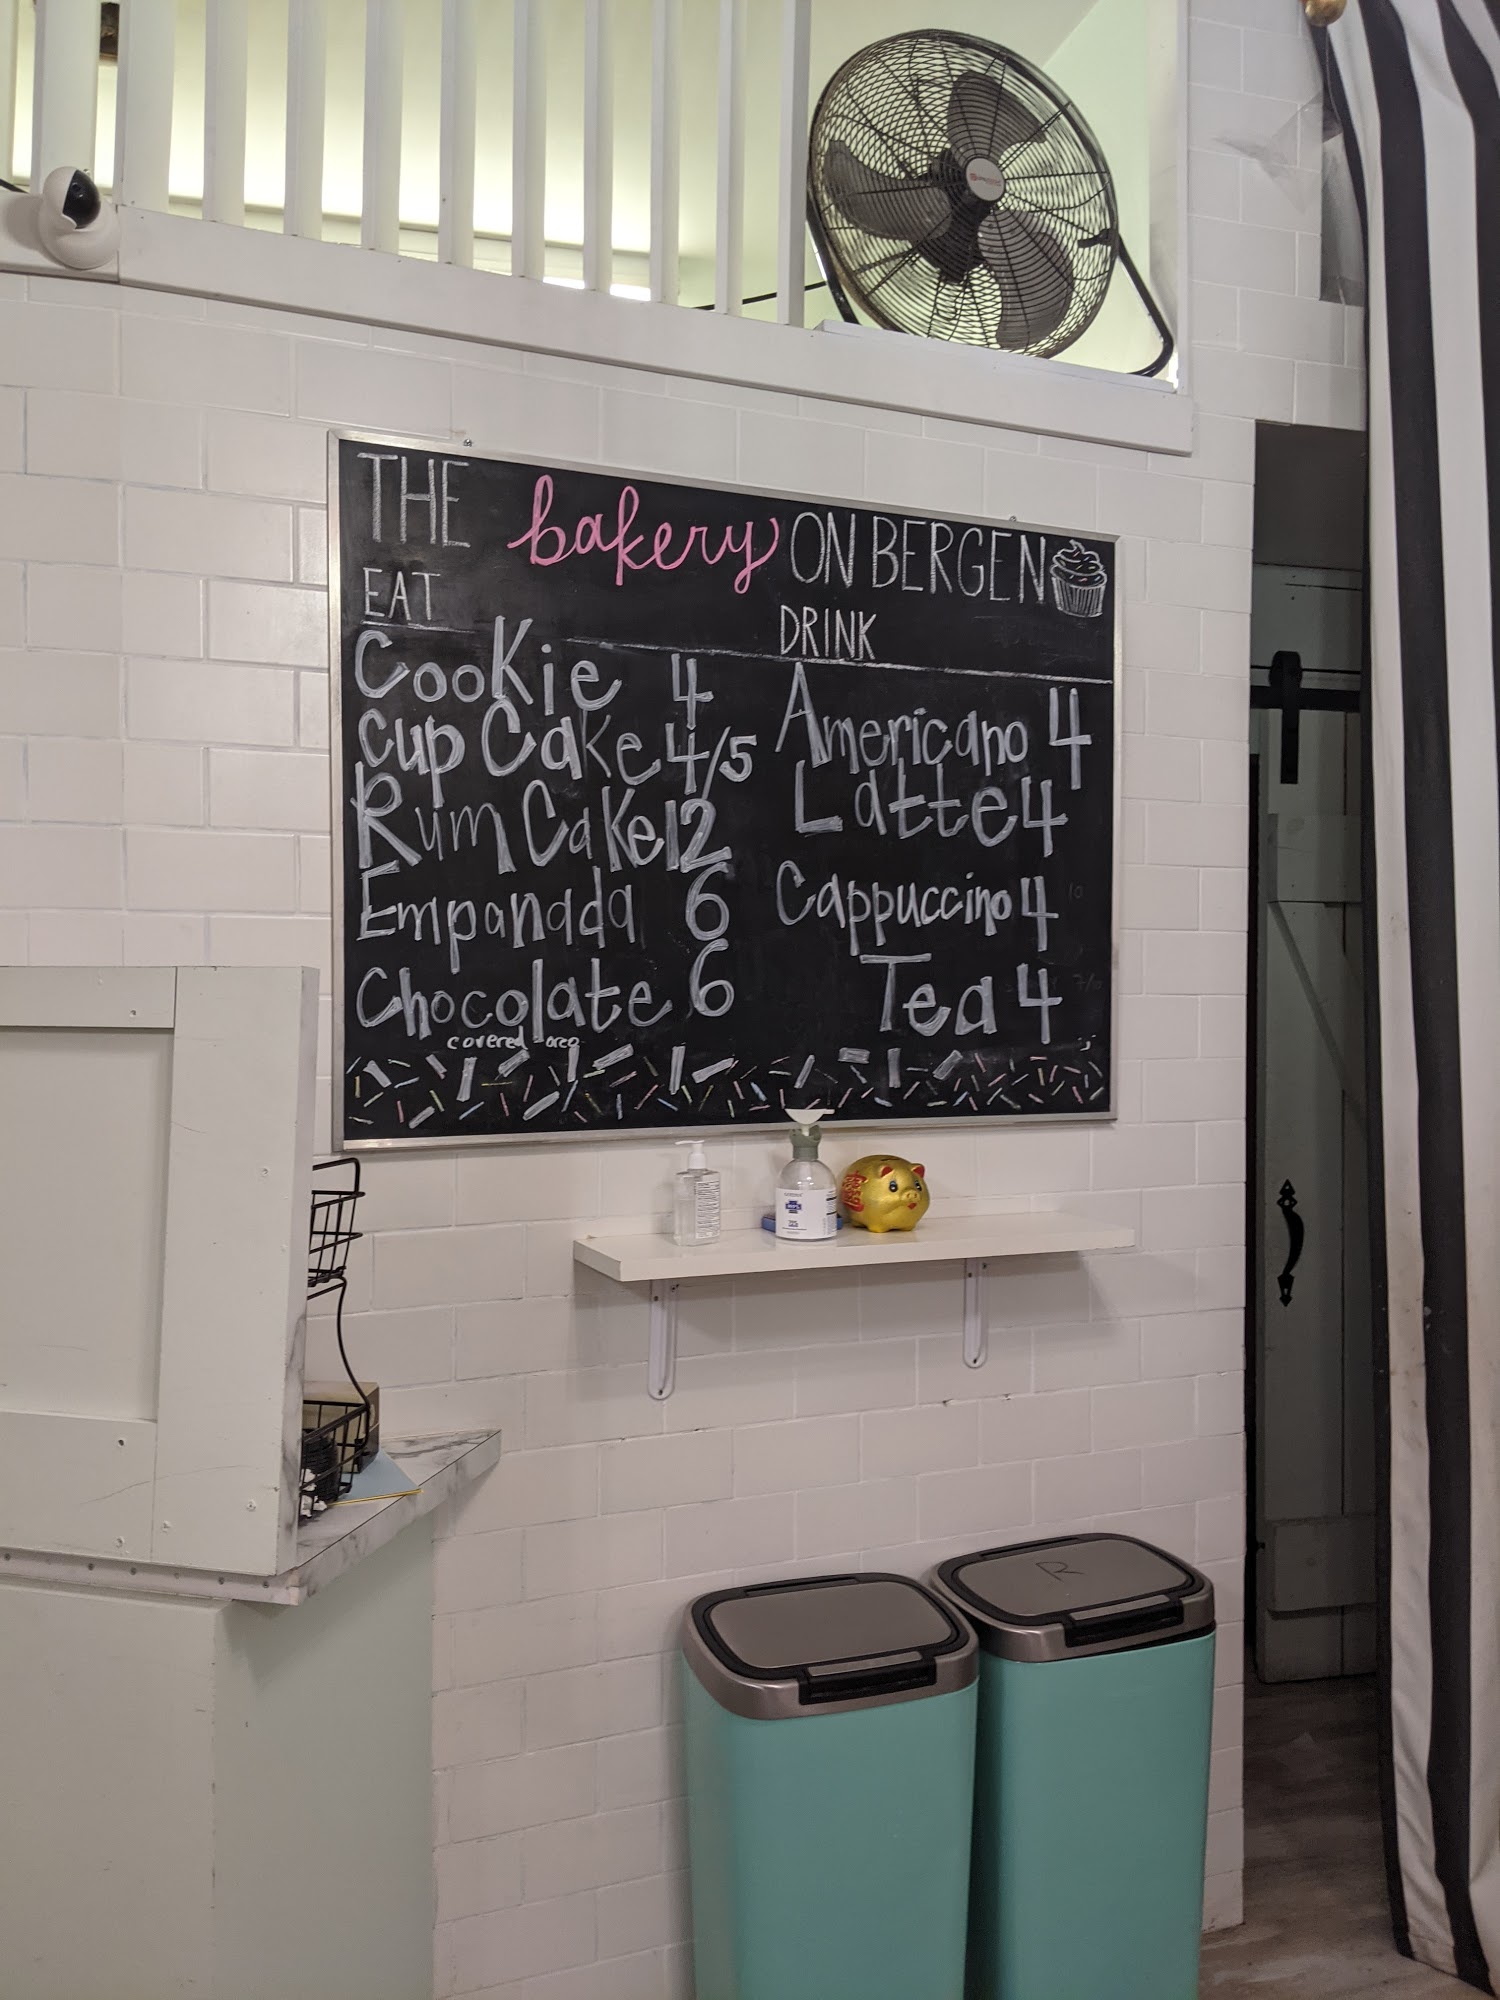 THE bakery ON BERGEN
EAT
Cookie 4
Cup Cake 4/5
Rum Cake 12
Empanada 6
Chocolate 6
covered oreo
DRINK
Americano 4
Latte 4
Cappuccino 4
Tea 4
R